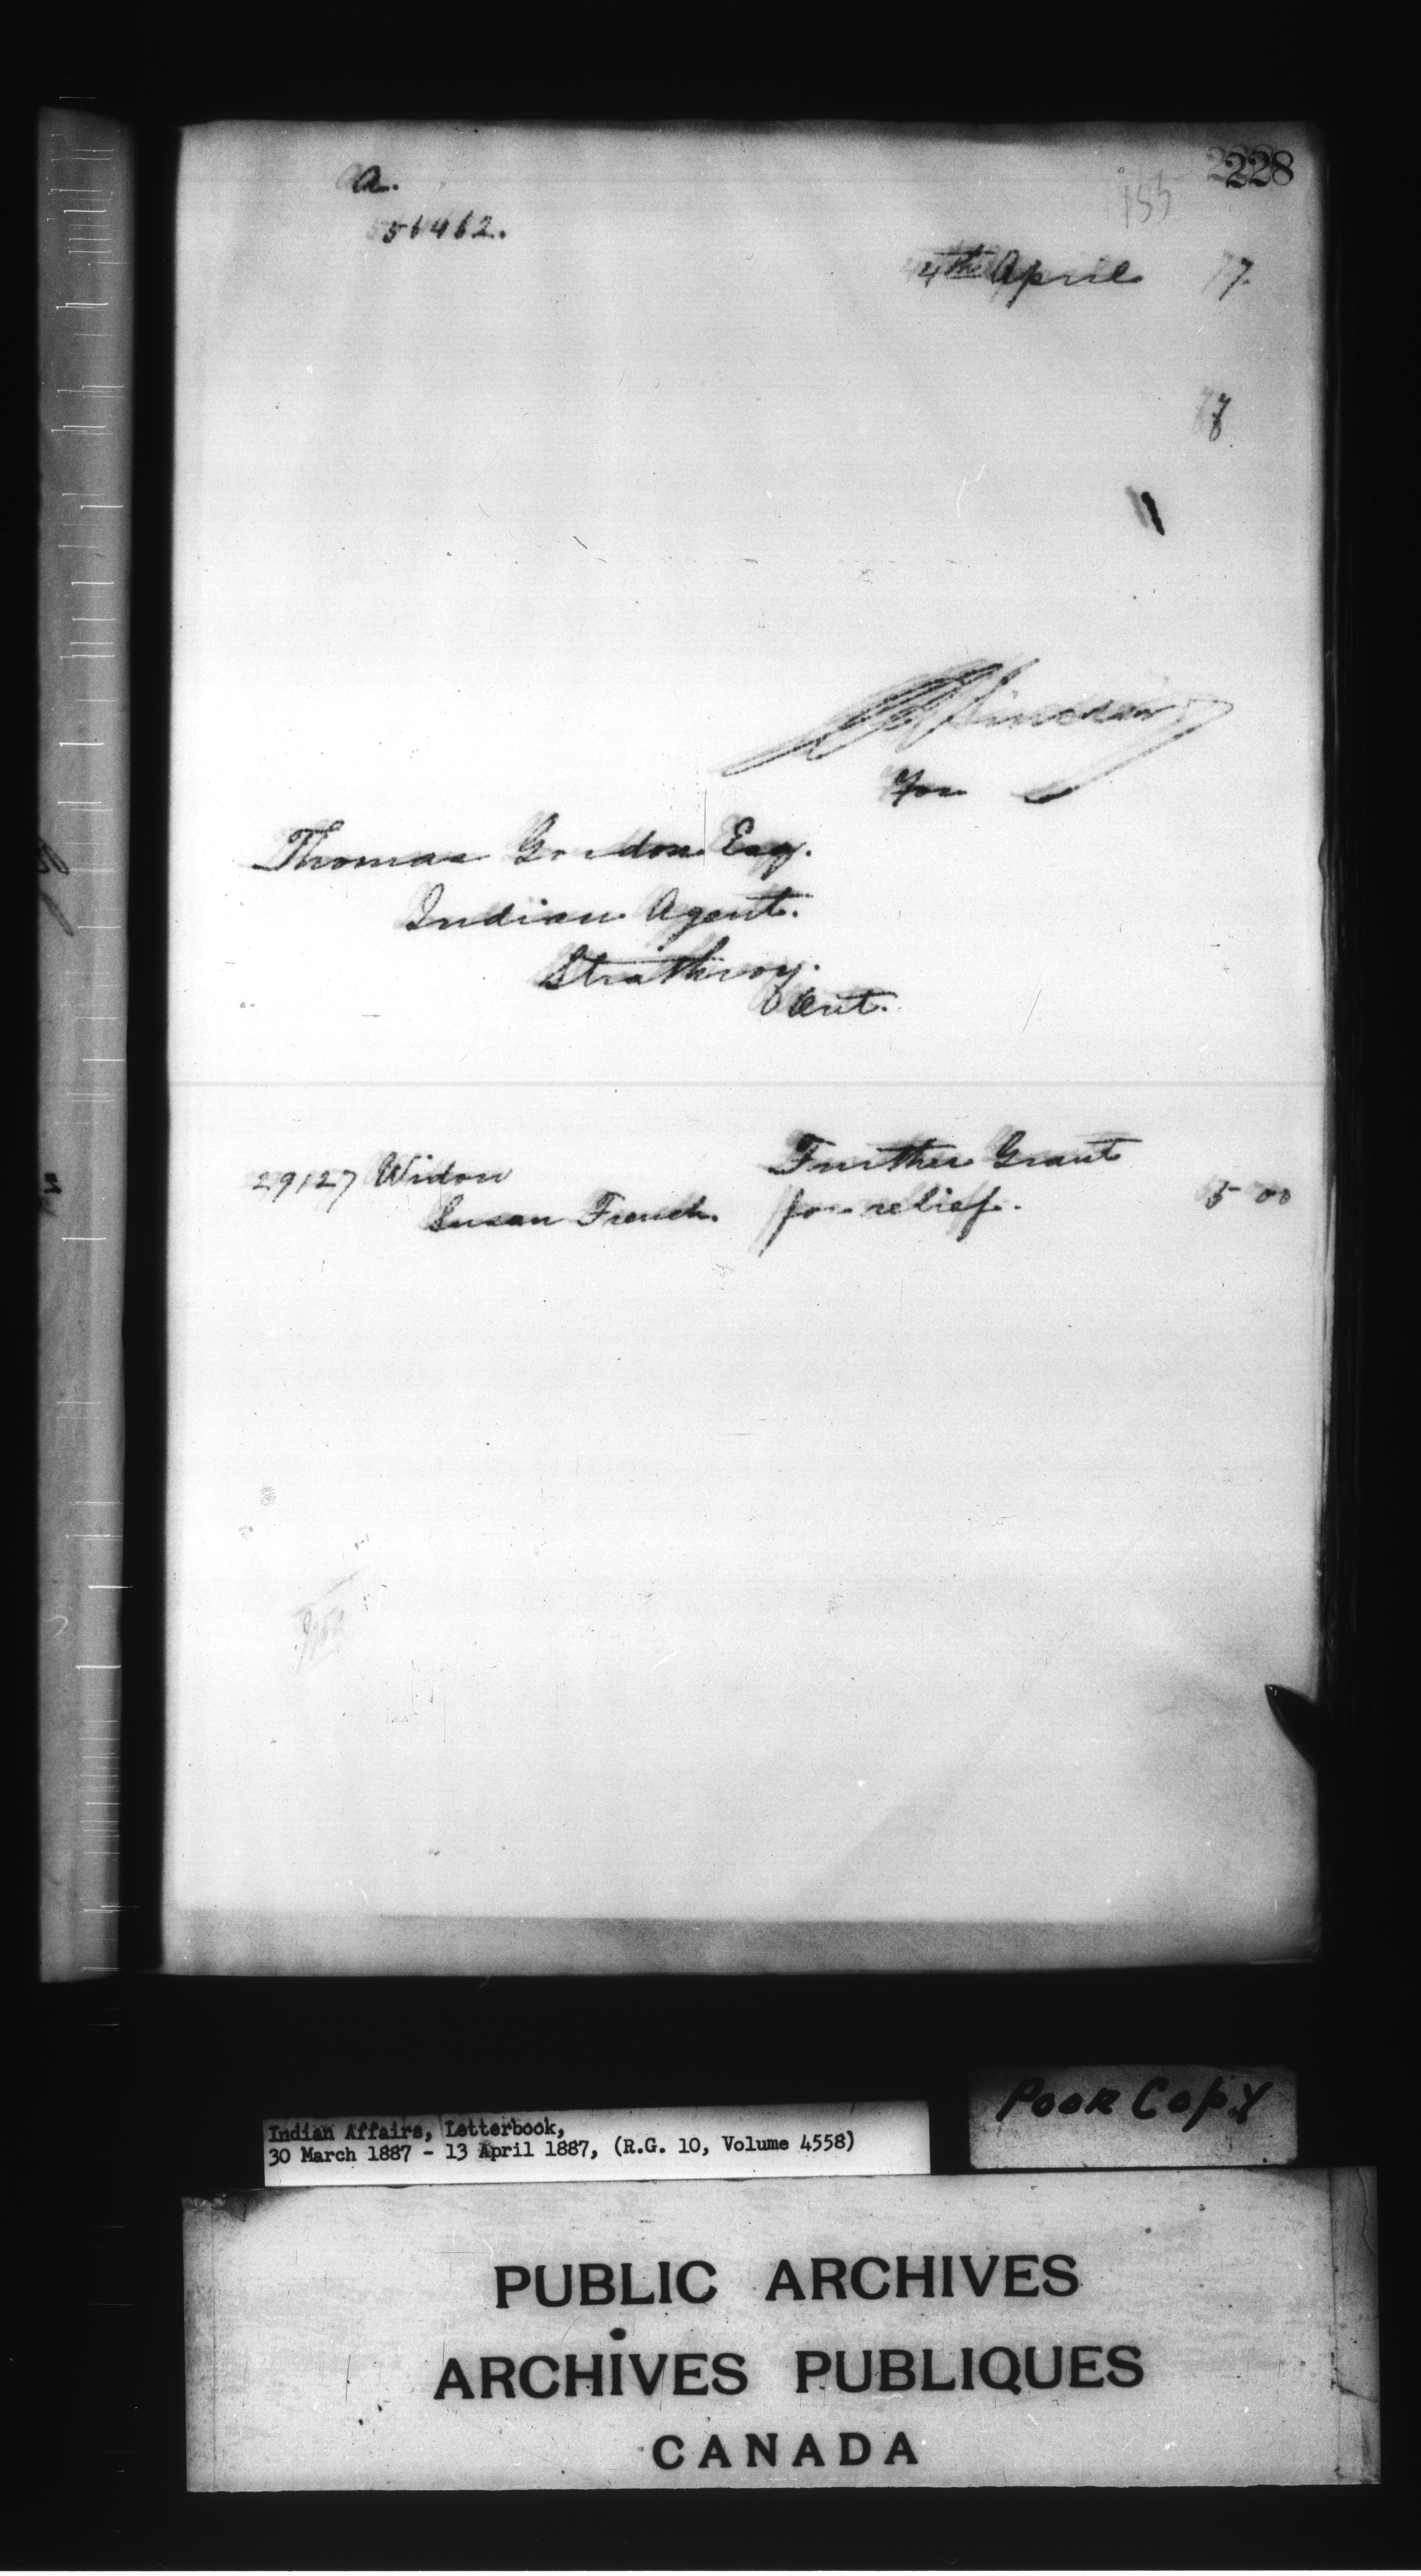 228
a.
155
56462.
4th April 7.
Sinclair
For
Thomas Gordon Esq.
Indian Agent.
Strathroy.
Ont.
29127 Widow Further Grant
Susan French. for relief. 5 00
Indian Affairs, Letterbook,
30 March 1887 - 13 April 1887, (R.G. 10, Volume 4558)
POOR COPY
PUBLIC ARCHIVES
ARCHIVES PUBLIQUES
CANADA